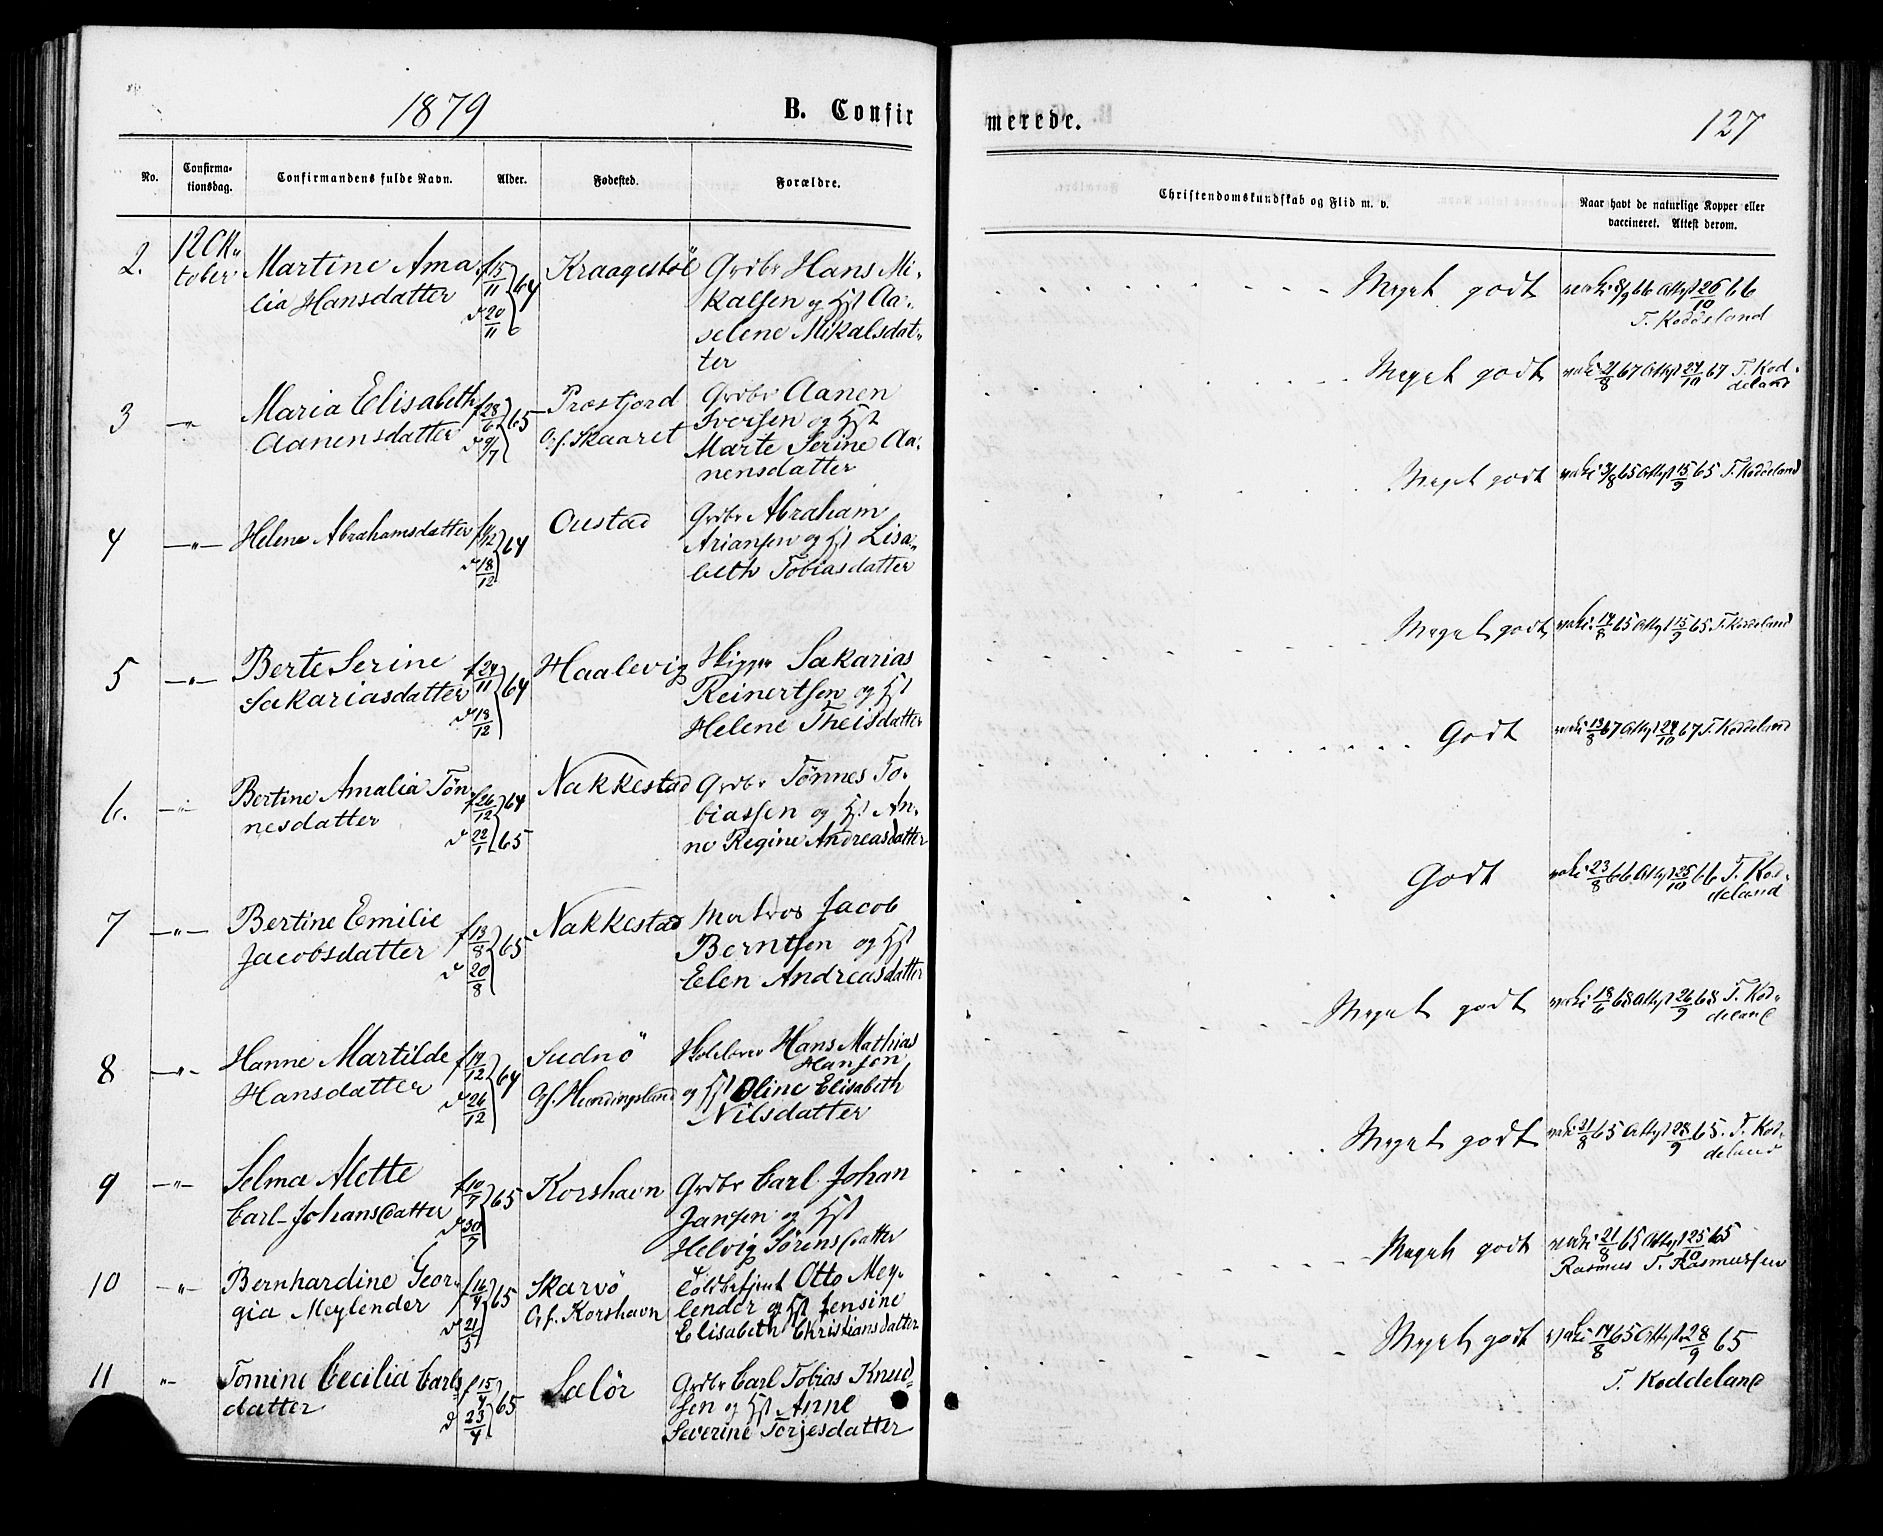 1879
B. Confir
merede.
127
No.
Confirma-
tionsdag.
Confirmandens fulde Navn.
Alder.
Fødested.
Forældre.
Christendomskundskab og Flid m. v.
Naar havt de naturlige Kopper eller
vaccineret. Attest derom.
2.
12 Ok„
tober
Martine Ama
lia Hansdatter
f 15/11 64
d 20/11
Kraagestøl
Grdbr Hans Mi-
kalsen og Hst Aa-
selene Mikalsdat„
ter
Meget godt
vakc 8/9 66 Attest 26/10 66
T. Koddeland
3
–„–
Maria Elisabeth
Aanensdatter
f 28/6 65
d 9/7
Præstjord
O.f. Skaaret
Grdbr Aanen
Iversen og Hst
Marte Serine Aa-
nensdatter
Meget godt
vakc 21/8 67 Attest 24/10 67 T. Kod-
deland
4
–„–
Helene Abrahamsdatter
f 11/12 64
d 18/12
Oustad
Grdbr Abraham
Ariansen og Hst Lisa„
beth Tobiasdatter
Meget godt
vakc 3/8 65 Attest 15/9 65 T. Koddeland
5
–„–
Berte Serine
Sakariasdatter
f 24/11 64
d 18/12
Haalevig
Skipper Sakarias
Reinertsen og Hst
Helene Theisdatter
Meget godt
vakc 14/8 65 Attest 15/9 65 T. Koddeland
6.
–„–
Bertine Amalia Tøn
nesdatter
f 26/12 64
d 22/1 65
Nakkestad
Grdbr Tønnes To-
biassen og Hst An-
ne Regine Andreasdatter
Godt
vakc 13/8 67 Attest 24/10 67 T. Koddeland
7
–„–
Bertine Emilie
Jacobsdatter
f 13/8 65
d 20/8
Nakkestad
Matros Jacob
Berntsen og Hst
Elen Andreasdatter
Godt
vakc 23/8 66 Attest 25/10 66 T. Kod-
deland
8
–„–
Hanne Martilde
Hansdatter
f 14/12 64
d 26/12
Sudnø
O.f. Hundingsland
Skolelærer Hans Mathias
Hansen
og Hst Oline Elisabeth
Nilsdatter
Meget godt
vakc 18/6 68 Attest 26/9 68 T. Kod-
deland
9
–„–
Selma Alette
Carl-Johansdatter
f 10/7 65
d 30/7
Korshavn
Grdbr Carl Johan
Jansen og Hst
Helvig Sørensdatter
Meget godt
vakc 21/8 65 Attest 28/9 65. T. Kod-
deland
10
–„–
Bernhardine Geor-
gia Meylender
f 16/4 65
d 21/5
Skarvø
O.f. Korshavn
Toldbetjent Otto Mey-
lender og Hst Jensine
Elisabeth Christiansdatter
Meget godt
vakc 21/8 65 Attest 25/10 65
Rasmus T. Rasmussen
11
„–
Tomine Cecilia Carls
datter
f 15/4 65
d 23/4
Sælør
Grdbr Carl Tobias Knud-
sen og Hst Anne
Severine Torjesdatter
Meget godt
vakc 14/8 65 Attest 28/9 65
T. Koddeland